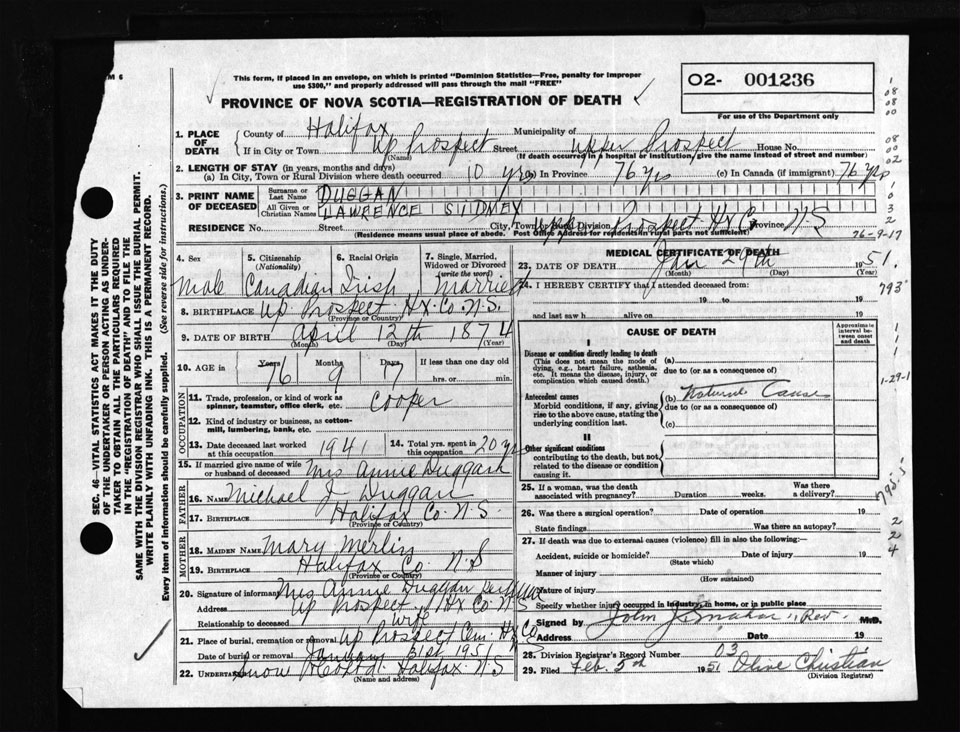 M 6
This form, if placed in an envelope, on which is printed "Dominion Statistics—Free, penalty for improper
use $300," and properly addressed will pass through the mail "FREE"
PROVINCE OF NOVA SCOTIA—REGISTRATION OF DEATH
O2- 001236
For use of the Department only
1. PLACE OF DEATH
County of Halifax Municipality of
If in City or Town Up Prospect Street Upper Prospect House No.
(Name) (If death occurred in a hospital or institution, give the name instead of street and number)
2. LENGTH OF STAY (in years, months and days)
(a) In City, Town or Rural Division where death occurred 10 yrs (b) In Province 76 yrs (c) In Canada (if immigrant) 76 yrs
3. PRINT NAME OF DECEASED
Surname or Last Name DUGGAN
All Given or Christian Names LAWRENCE SIDNEY
RESIDENCE No. Street City, Town or Rural Division Upp Prospect Hx Co Province N.S
(Residence means usual place of abode. Post Office Address for residents in rural parts not sufficient)
76-9-17
4. Sex Male
5. Citizenship (Nationality) Canadian
6. Racial Origin Irish
7. Single, Married, Widowed or Divorced (write the word) Married
8. BIRTHPLACE Up Prospect Hx. Co. N.S.
(Province or Country)
9. DATE OF BIRTH April 12th 1874
(Month) (Day) (Year)
10. AGE in Years Months Days If less than one day old
76 9 17 hrs. or min.
OCCUPATION
11. Trade, profession, or kind of work as spinner, teamster, office clerk, etc. Cooper
12. Kind of industry or business, as cotton-mill, lumbering, bank, etc.
13. Date deceased last worked at this occupation 1941
14. Total yrs. spent in this occupation 20 yrs
15. If married give name of wife or husband of deceased Mrs Annie Duggan
FATHER
16. NAME Michael J Duggan
17. BIRTHPLACE Halifax Co. N.S.
(Province or Country)
MOTHER
18. MAIDEN NAME Mary Merlin
19. BIRTHPLACE Halifax Co. N.S
(Province or Country)
20. Signature of informant Mrs Annie Duggan
Address Up Prospect Hx Co N.S
Relationship to deceased wife
21. Place of burial, cremation or removal Up Prospect Cem. Hx Co
Date of burial or removal January 31st 1951
22. UNDERTAKER Snow Halifax N.S
(Name and address)
MEDICAL CERTIFICATE OF DEATH
23. DATE OF DEATH Jan 29th 1951.
(Month) (Day) (Year)
24. I HEREBY CERTIFY that I attended deceased from:
19 to 19
and last saw h alive on 19
CAUSE OF DEATH
Approximate interval between onset and death
I
Disease or condition directly leading to death (a)
(This does not mean the mode of dying, e.g., heart failure, asthenia, etc. It means the disease, injury, or complication which caused death.
due to (or as a consequence of)
Antecedent causes (b) Natural Cause
Morbid conditions, if any, giving rise to the above cause, stating the underlying condition last.
due to (or as a consequence of)
(c)
II
Other significant conditions
contributing to the death, but not related to the disease or condition causing it.
25. If a woman, was the death associated with pregnancy? Duration weeks. Was there a delivery?
26. Was there a surgical operation? Date of operation 19
State findings Was there an autopsy?
27. If death was due to external causes (violence) fill in also the following:—
Accident, suicide or homicide? Date of injury 19
(State which)
Manner of injury
(How sustained)
Nature of injury
Specify whether injury occurred in industry, in home, or in public place
Signed by John J. Rev. M.D.
Address Date 19
28. Division Registrar's Record Number 03
29. Filed Feb. 5th 1951 Olive Christian
(Division Registrar)
793
1-29-1
795.5
2
2
4
SEC. 46—VITAL STATISTICS ACT MAKES IT THE DUTY
OF THE UNDERTAKER OR PERSON ACTING AS UNDER-
TAKER TO OBTAIN ALL THE PARTICULARS REQUIRED
IN THE "REGISTRATION OF DEATH" AND TO FILE THE
SAME WITH THE DIVISION REGISTRAR WHO SHALL ISSUE THE BURIAL PERMIT.
WRITE PLAINLY WITH UNFADING INK. THIS IS A PERMANENT RECORD.
Every item of information should be carefully supplied. (See reverse side for instructions.)